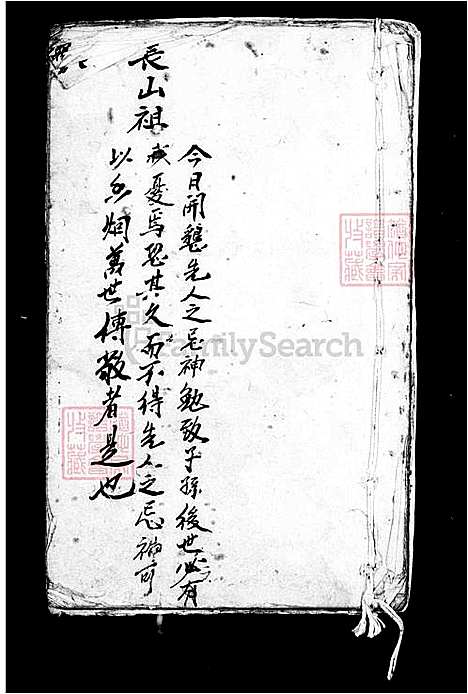 今日開懇先人之忌神勉致子孫後世必有
長山祖 憂焉恐其久而不得先人之忌神可
以 烟萬世傳敬者是也
FamilySearch